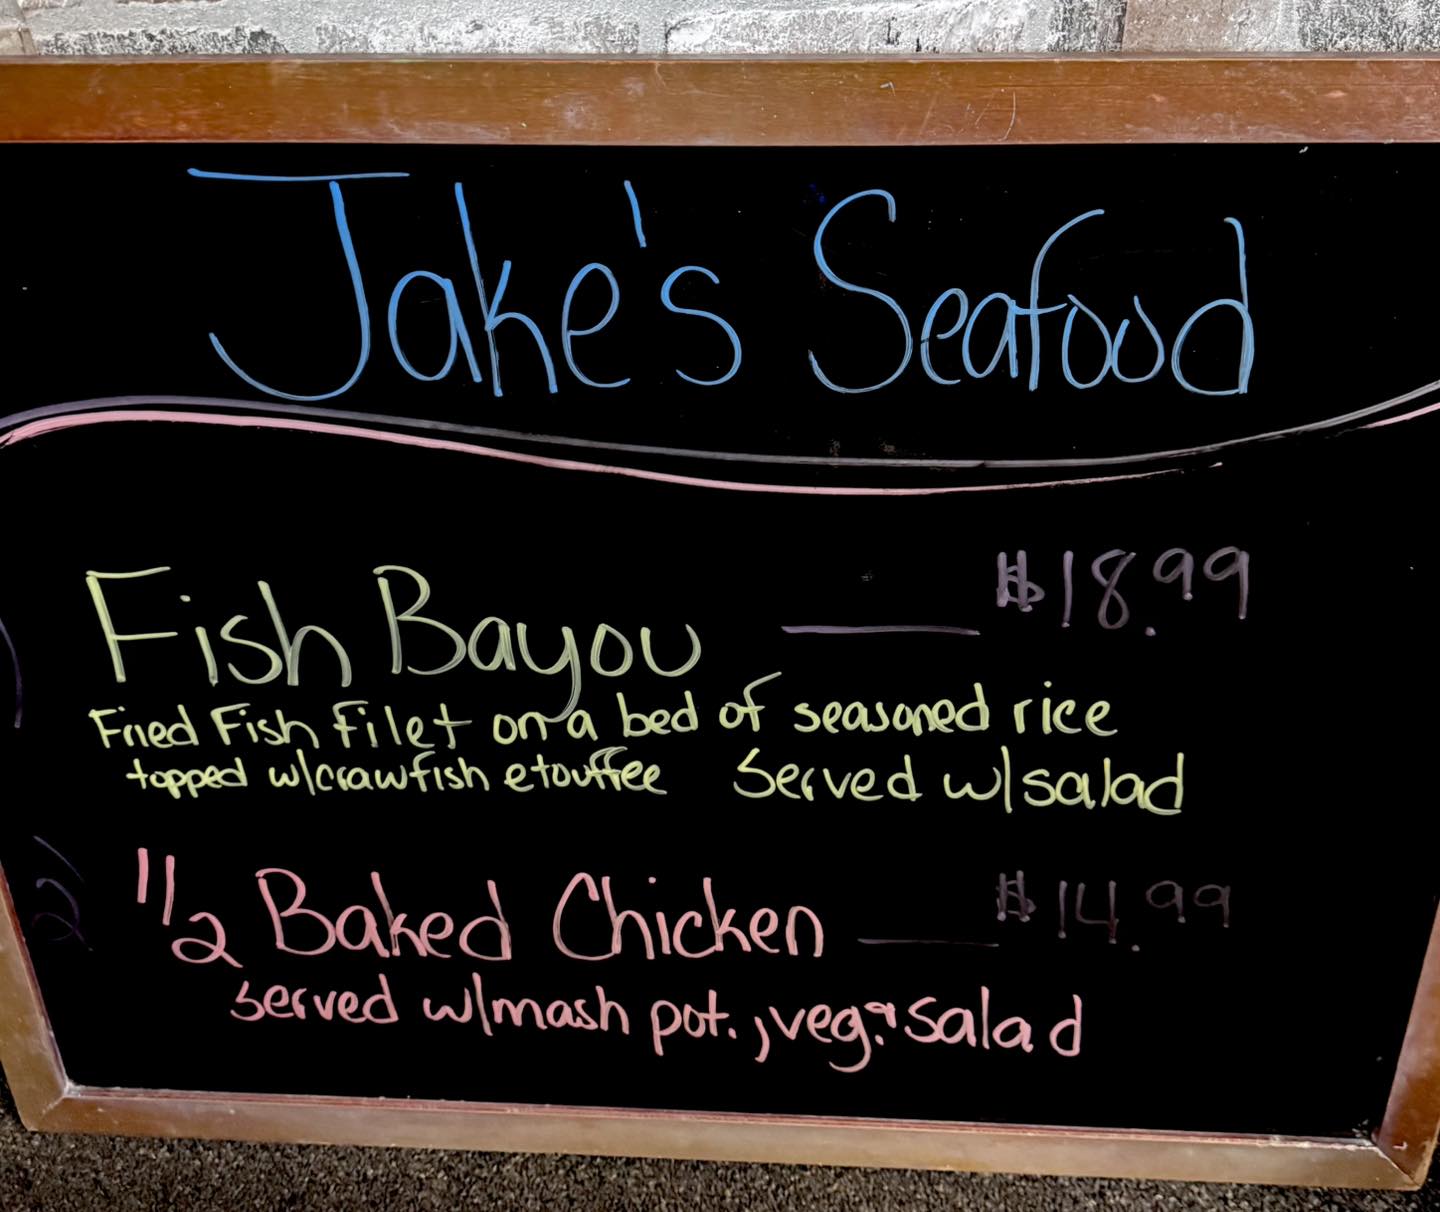 Jake's Seafood
Fish Bayou $18.99
Fried Fish Filet on a bed of seasoned rice
topped w/crawfish etouffee Served w/salad
1/2 Baked Chicken $14.99
Served w/mash pot., veg. & Salad